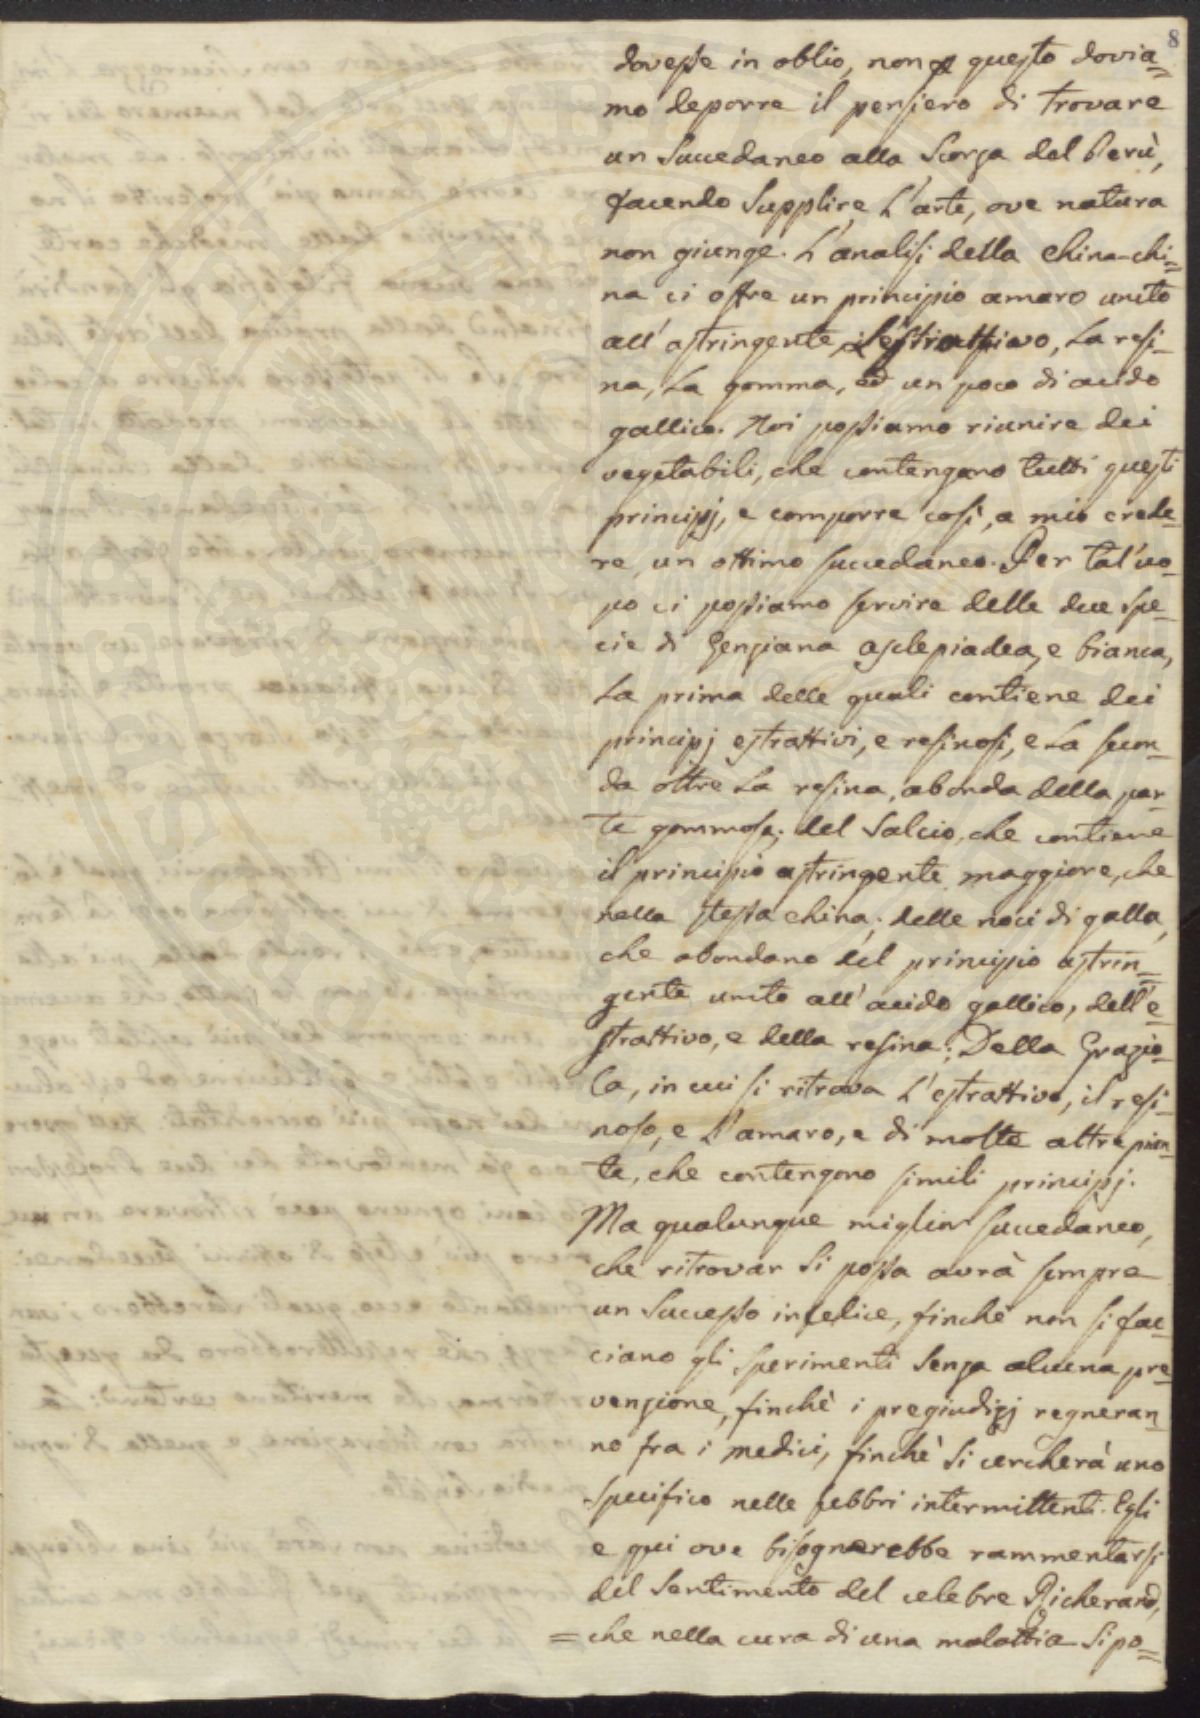 8
dovesse in oblio, non p questo dovia=
mo deporre il pensiero di trovare
un Succedaneo alla Scorza del Perù,
facendo Supplire L'arte, ove natura
non giunge. L'analisi della China-chi=
na ci offre un principio amaro unito
all'astringente, L'estrattivo, La resi-
na, La gomma, ed un poco di acido
gallico. Noi possiamo riunire dei
vegetabili, che contengano tutti questi
principj, e comporre così, a mio crede-
re, un ottimo succedaneo. Per tal'uo-
po ci possiamo servire delle due spe-
cie di Genziana asclepiadea, e bianca,
La prima delle quali contiene dei
principj estrattivi, e resinosi, e La secon-
da oltre La resina, abonda della par-
te gommosa; del Salcio, che contiene
il principio astringente maggiore, che
nella stessa china; delle noci di galla,
che abondano del principio astrin=
gente unito all'acido gallico, dell'e-
strattivo, e della resina; Della Grazio-
la, in cui si ritrova L'estrattivo, il resi-
noso, e L'amaro, e di molte altre pian-
te, che contengono simili principj.
Ma qualunque miglior succedaneo,
che ritrovar Si possa avrà sempre
un Successo infelice, finchè non si fac-
ciano gli sperimenti Senza alcuna pre-
venzione, finchè i pregiudizj regneran-
no fra i medici, finchè Si cercherà uno
Specifico nelle febbri intermittenti. Egli
e qui ove bisognerebbe rammentarsi
del Sentimento del celebre Richerand,
= che nella cura di una malattia Si po=